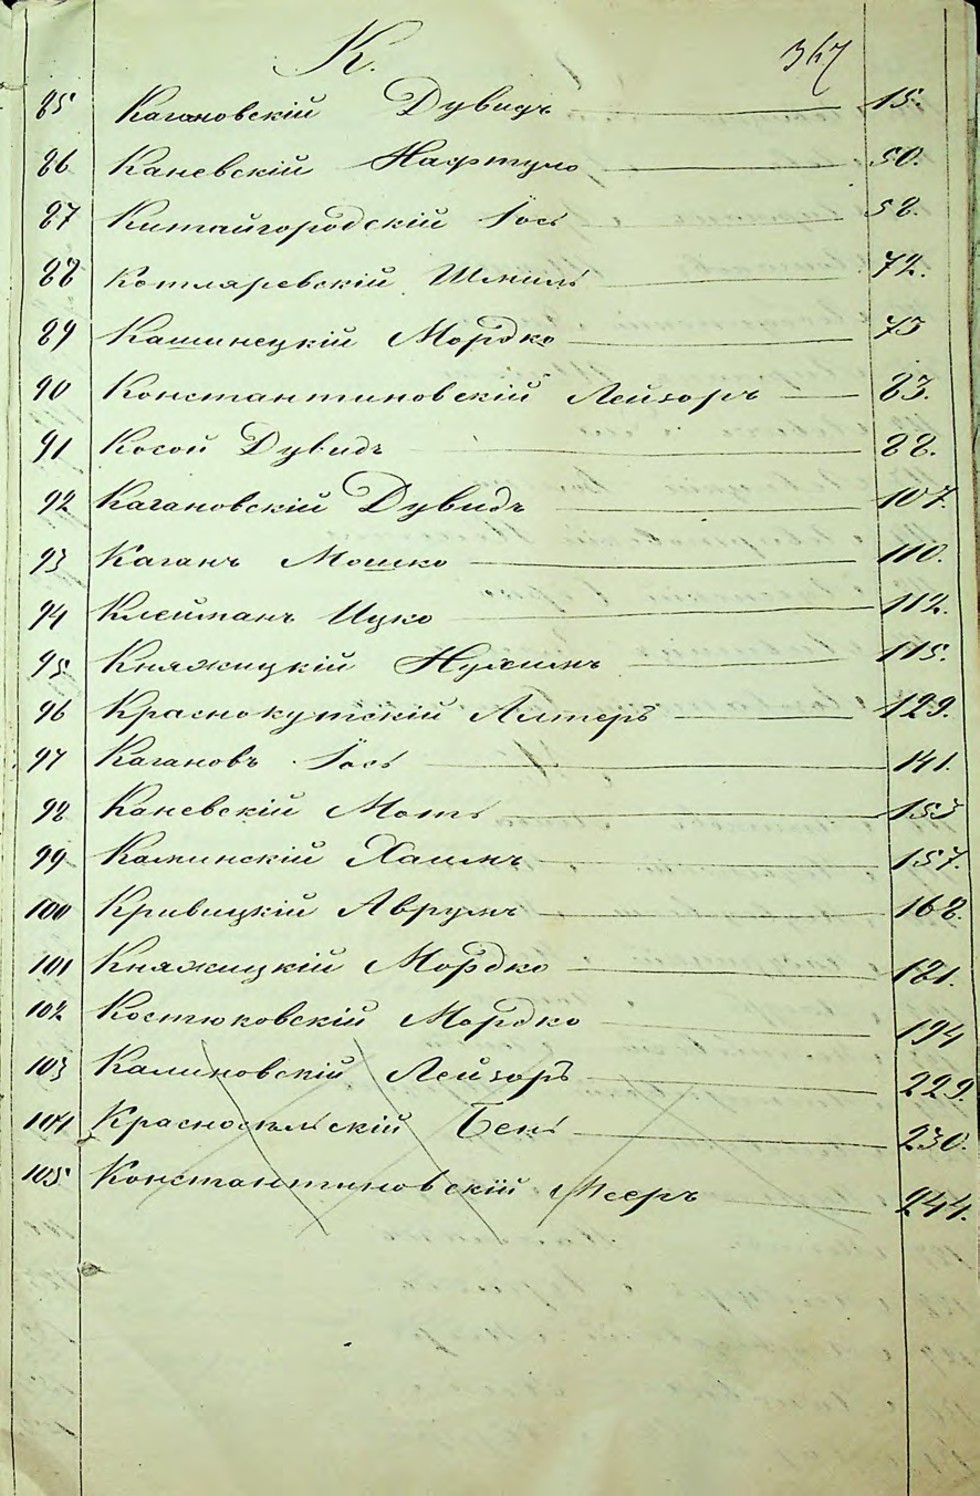 К.
367
85 Кагановскій Дувидъ 15.
86 Каневскій Нафтуло 50.
87 Китайгородскій Іось 58.
88 Котляревскій Шмиль 72.
89 Кашинецкій Мордко 73
90 Константиновскій Лейзоръ 83.
91 Косой Дувидъ 88.
92 Кагановскій Дувидъ 107.
93 Каганъ Мошко 110.
94 Клейманъ Ицко 112.
95 Княжицкій Нухимъ 115.
96 Краснокутскій Алтеръ 129.
97 Кагановъ Іось 141.
98 Каневскій Моть 153
99 Каминскій Хаимъ 157.
100 Кривицкій Аврумъ 168.
101 Княжицкій Мордко 181.
102 Костюковскій Мордко 194
103 Калиновскій Лейзоръ 229.
104 Красносельскій Бень 230.
105 Константиновскій Мееръ 244.